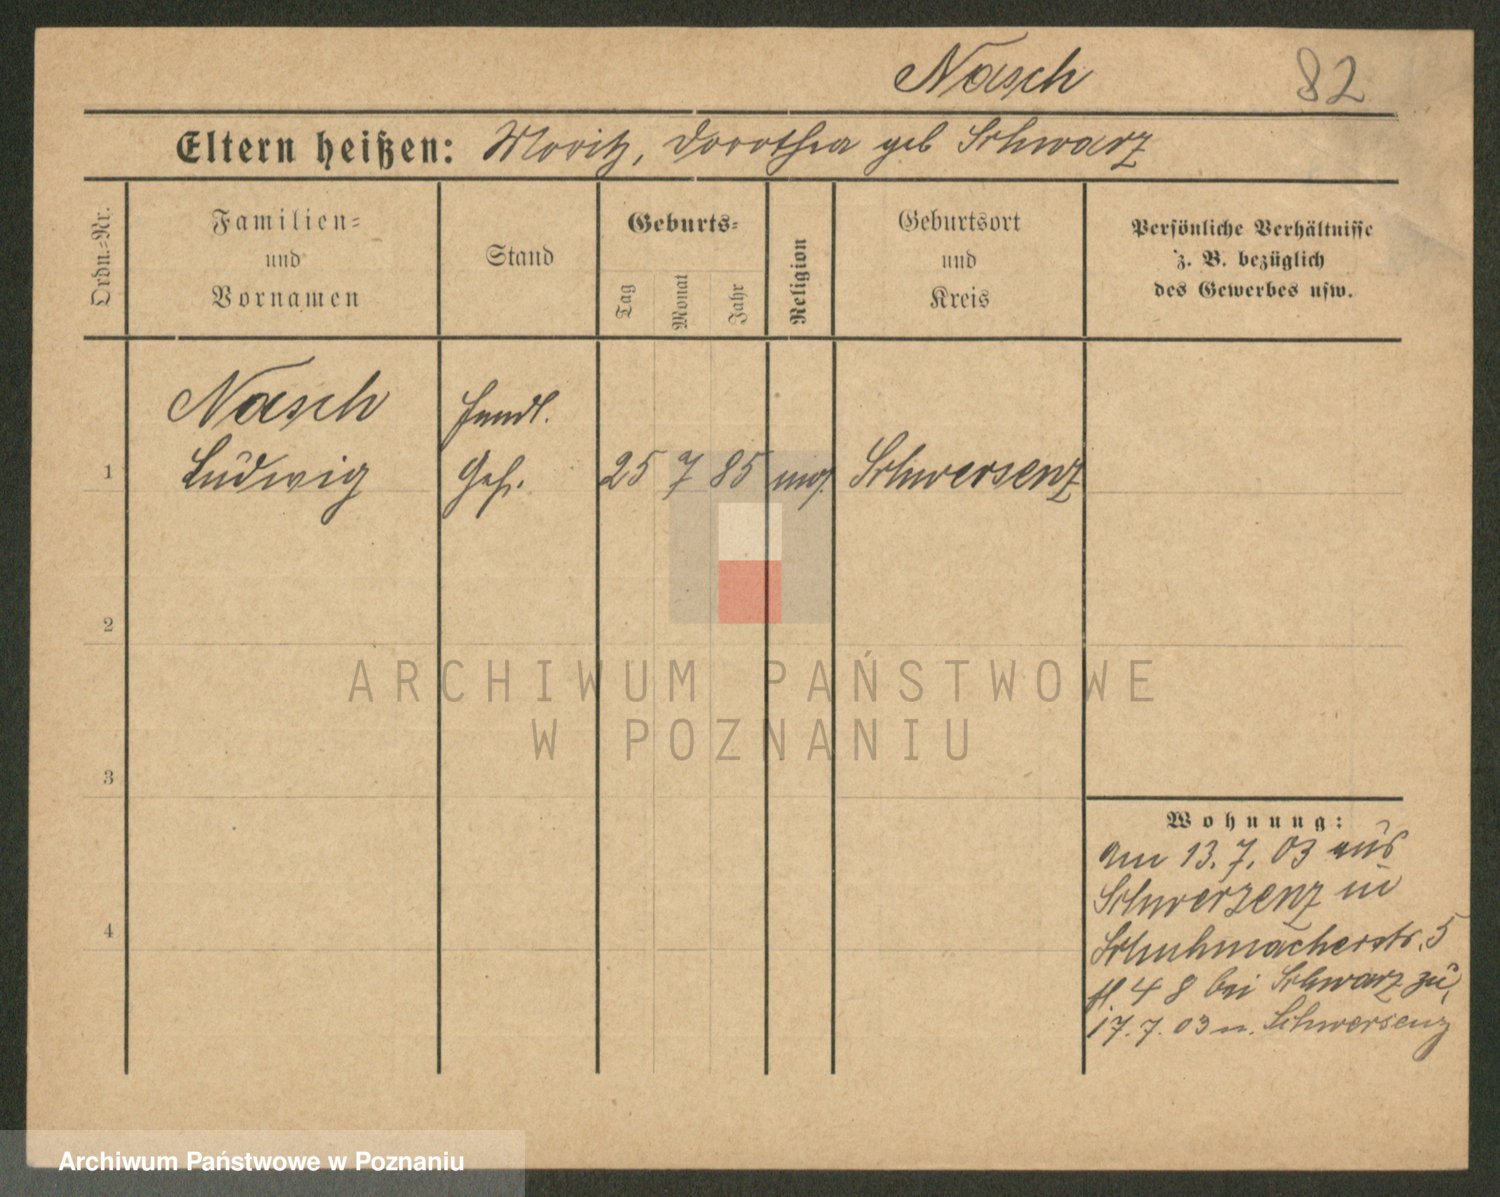 Nasch 82
Eltern heißen: Moritz, Dorothea geb Schwarz
Ordn.-Nr.
Familien-
und
Vornamen
Stand
Geburts-
Tag
Monat
Jahr
Religion
Geburtsort
und
Kreis
Persönliche Verhältnisse
z. B. bezüglich
des Gewerbes usw.
Nasch
Ludwig
Handl.
Geh.
1
25 7 85 mos. Schwersenz
2
3
4
ARCHIWUM PAŃSTWOWE
W POZNANIU
Wohnung:
am 13.7.03 aus
Schwersenz in
Schuhmacherstr. 5
bei Schwarz zu,
17.7.03 n. Schwersenz
Archiwum Państwowe w Poznaniu